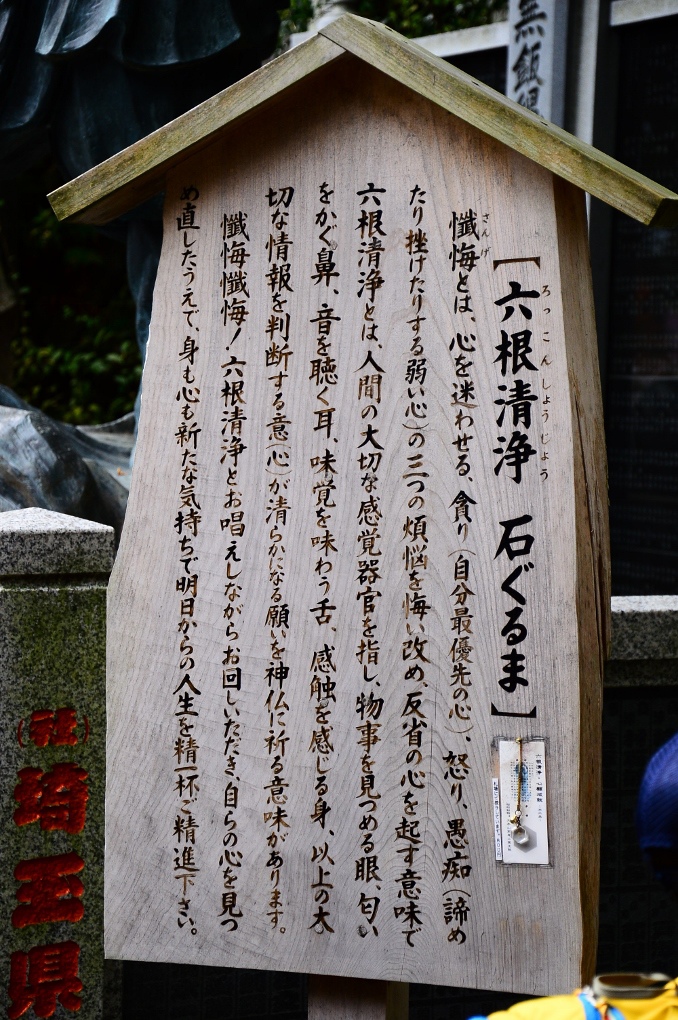 【六根清浄　石ぐるま】
ろっこんしょうじょう
さんげ
懺悔とは、心を迷わせる、貪り（自分最優先の心）、怒り、愚痴（諦め
たり挫けたりする弱い心）の三つの煩悩を悔い改め、反省の心を起す意味で
六根清浄とは、人間の大切な感覚器官を指し、物事を見つめる眼、匂い
をかぐ鼻、音を聴く耳、味覚を味わう舌、感触を感じる身、以上の大
切な情報を判断する意（心が清らかになる願いを神仏に祈る意味があります。
懺悔懺悔！六根清浄とお唱えしながらお回しいただき、自らの心を見つ
め直したうえで、身も心も新たな気持ちで明日からの人生を精一杯ご精進下さい。
六根清浄・心願成就
(社)埼玉県
無飯